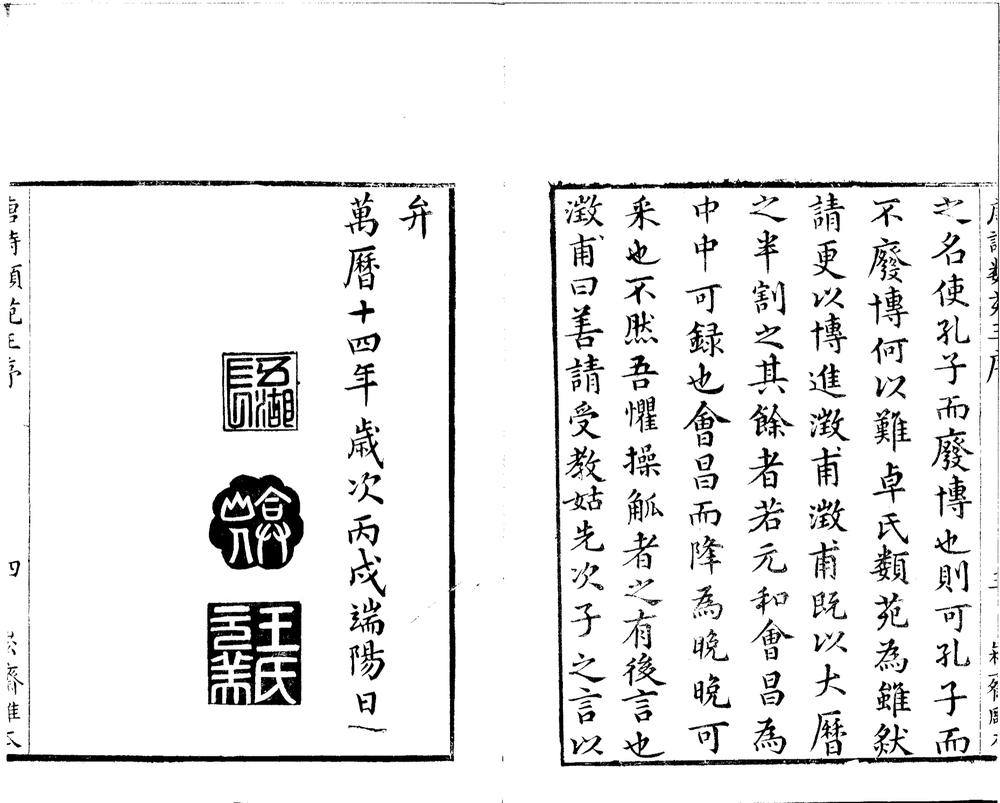 之名使孔子而廢博也則可孔子而
不廢博何以難卓氏類苑為雖然
請更以博進澂甫澂甫既以大曆
之半割之其餘者若元和會昌為
中中可録也會昌而降為晚晚可
采也不然吾懼操觚者之有後言也
澂甫曰善請受教姑先次子之言以
弁
萬曆十四年歲次丙戌端陽日
五湖長
弇山人
王氏元美
四